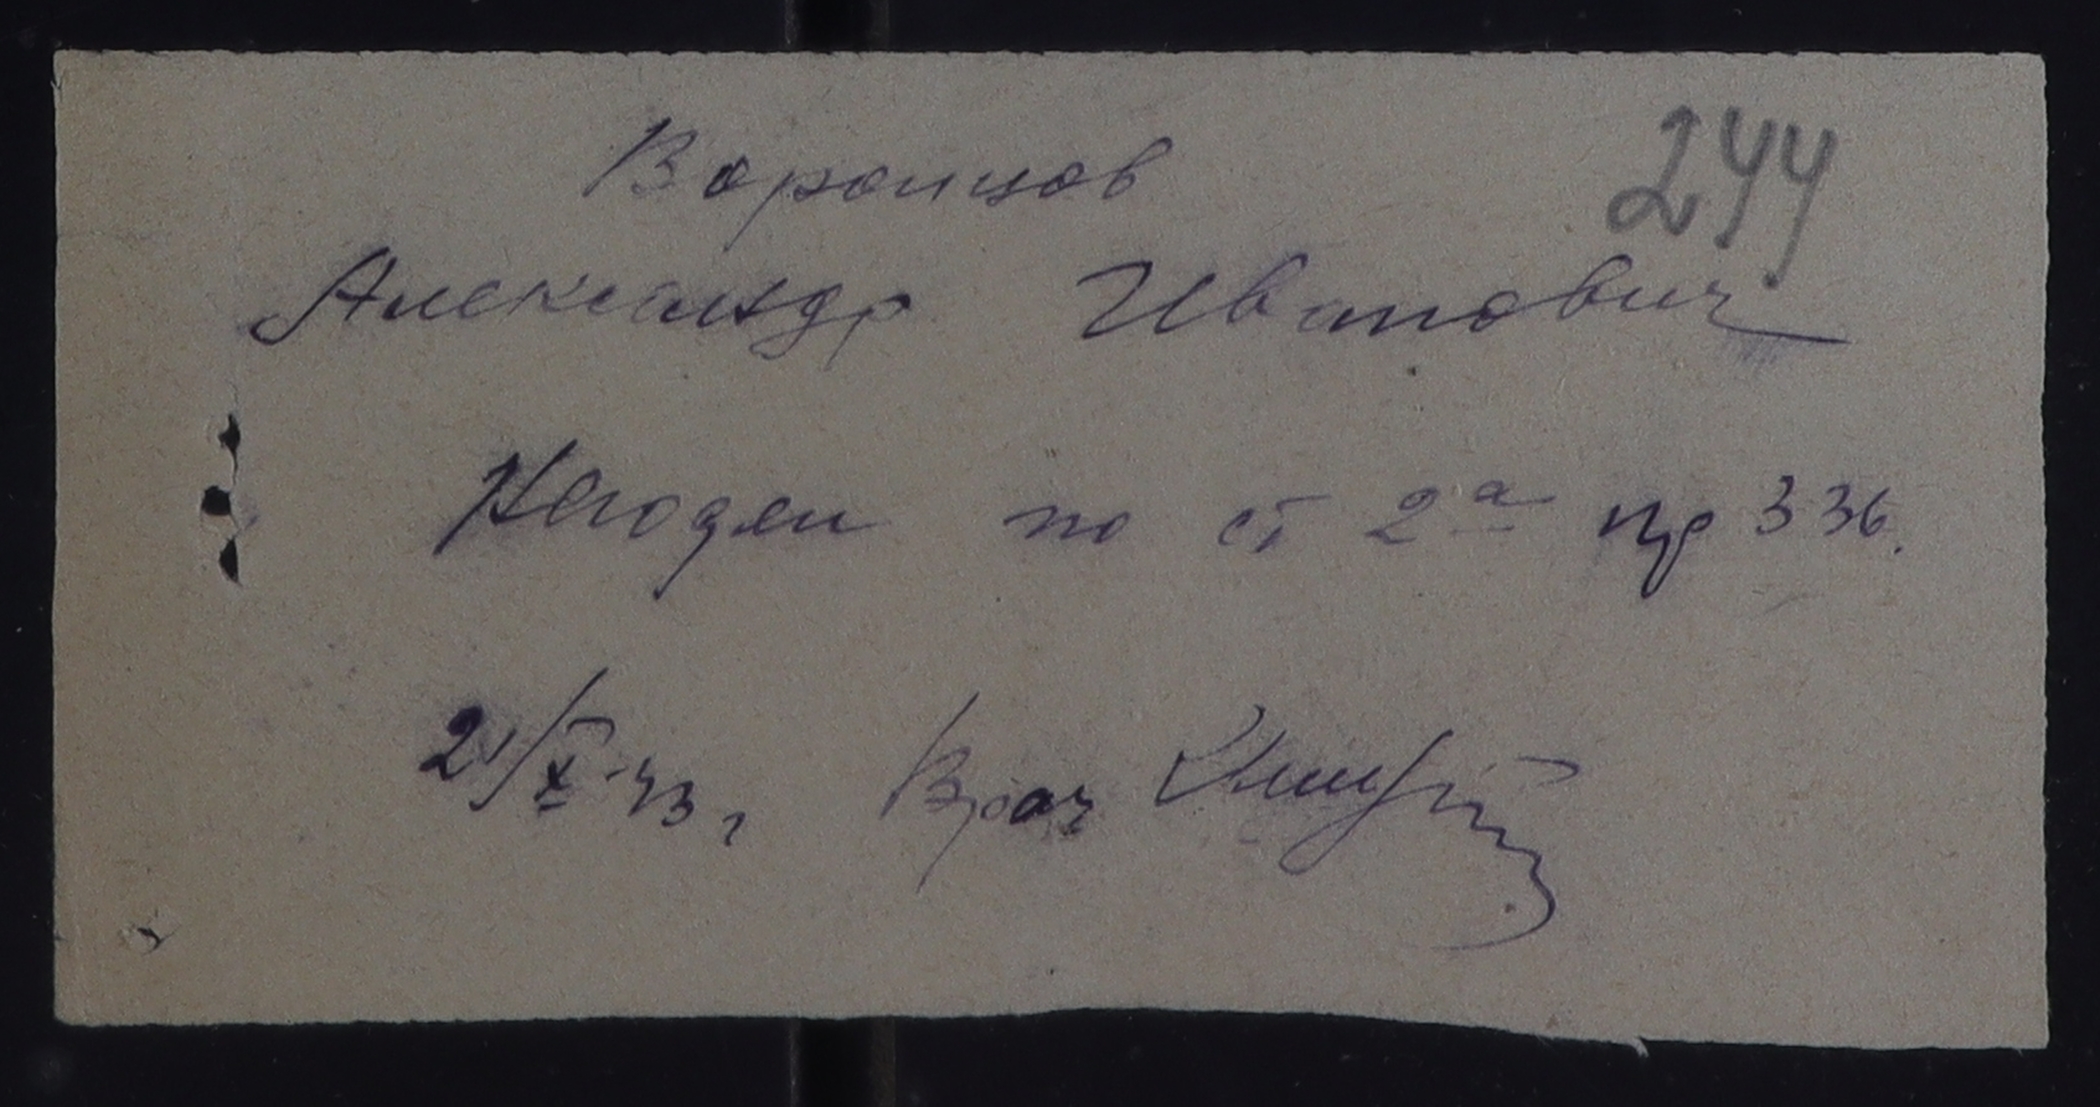 244
Воронцов
Александр Иванович
Негоден по ст 2а пр 336.
21/X-43 г
Врач